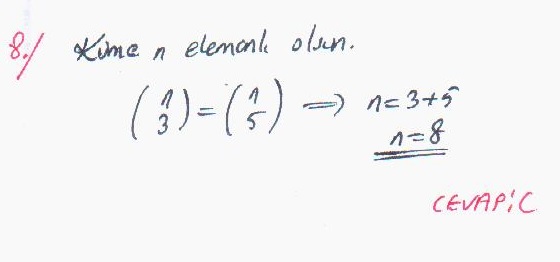 8./ Küme n elemanlı olsun.
(n 3) = (n 5) ⟹ n=3+5
n=8
CEVAP: C